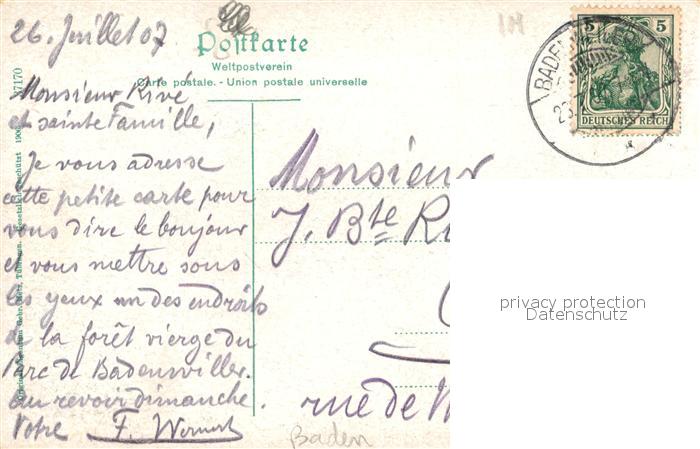 26. Juillet 07
Postkarte
Weltpostverein
Carte postale. - Union postale universelle
5 5
DEUTSCHES REICH
BADEN
Monsieur Rivé
et sainte Famille,
Je vous adresse
cette petite carte pour
vous dire le bonjour
et vous mettre sous
les yeux un des endroits
de la forêt vierge du
Parc de Badenwiller.
au revoir dimanche.
Votre F.
Monsieur
J. Bte
rue de
Baden
privacy protection
Datenschutz